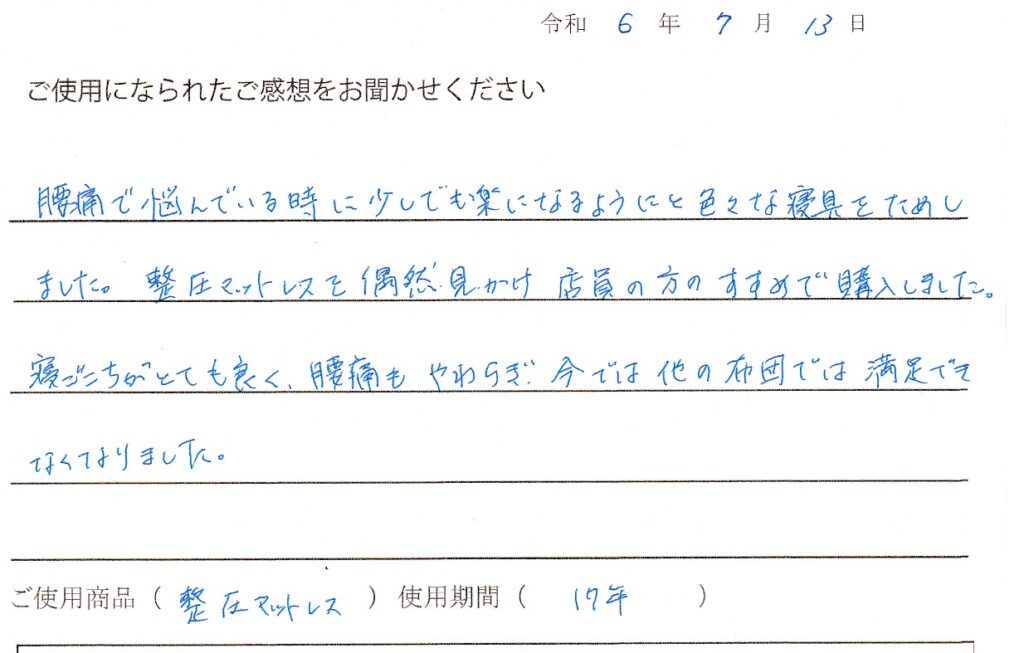 令和 6 年 7 月 13 日
ご使用になられたご感想をお聞かせください
腰痛で悩んでいる時に少しでも楽になるようにと色々な寝具をためし
ました。整圧マットレスを偶然見かけ店員の方のすすめで購入しました。
寝ごこちがとても良く、腰痛もやわらぎ今では他の布団では満足でき
なくなりました。
ご使用商品（整圧マットレス）使用期間（17年）